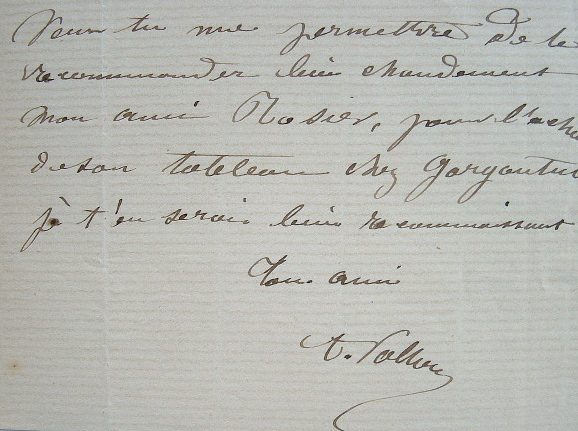 Veux tu me permettre de te
recommander bien chaudement
mon ami Rosier, pour l'acha
de son tableau chez Gargantua
je t'en serai bien reconnaissant
Ton ami
A. Vollon